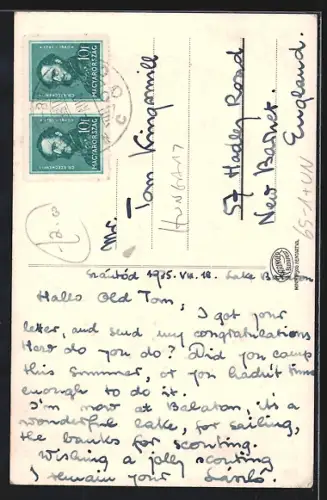 10f
MAGYARORSZÁG
10f
MAGYARORSZÁG
Mr.
Tom Kingsmill
57 Hadley Road
New Barnet.
England.
HUNGARY
Szántód 1935. VIII. 18. Lake Balaton
Hallo Old Tom,
I got your
letter, and send my congratulations
How do you do? Did you camp
this summer, or you hadn't time
enough to do it.
I'm now at Balaton, it's a
wonderful lake, for sailing,
the banks for scouting.
Wishing a jolly scouting
I remain your László.